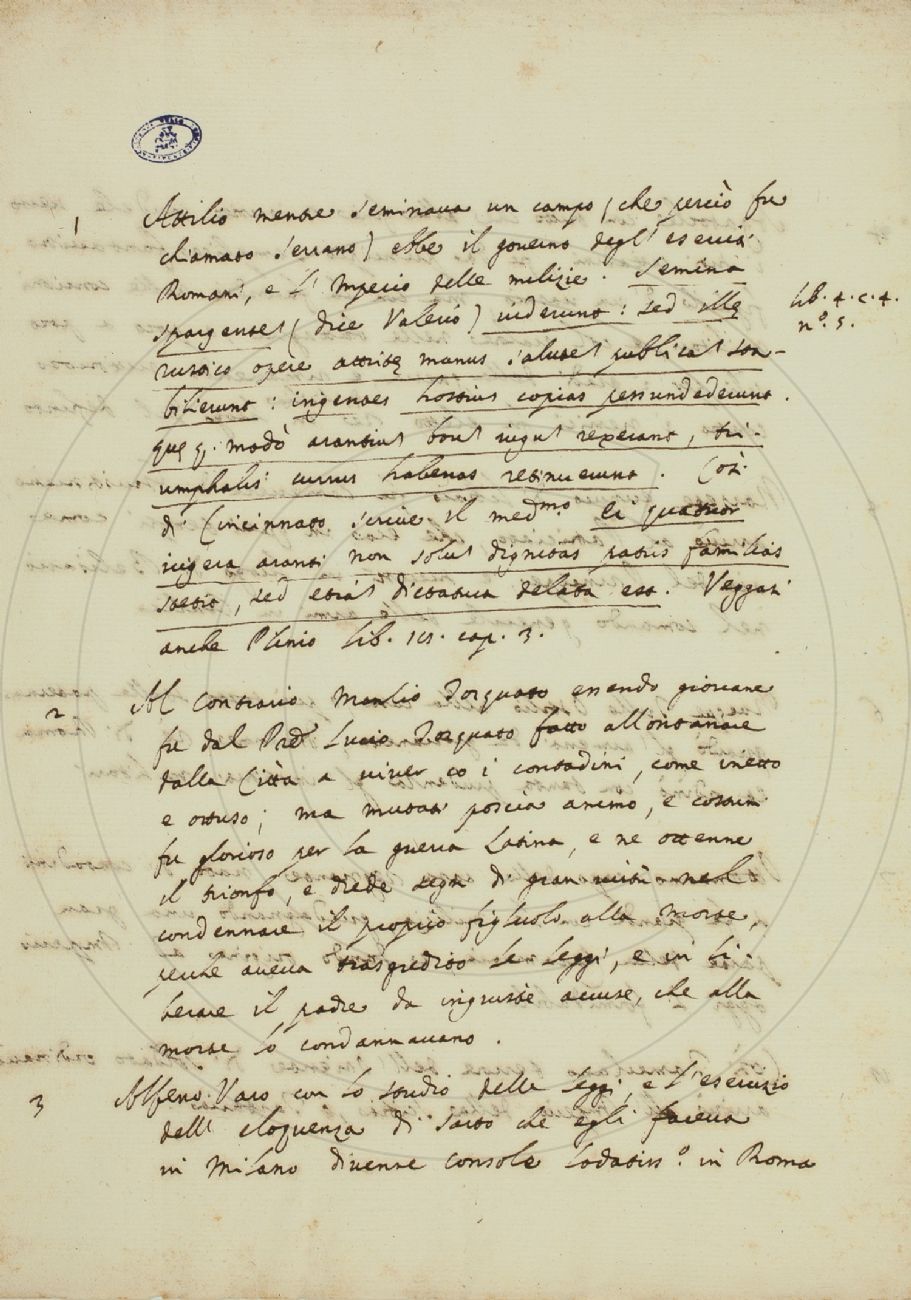 1 Attilio mentre seminava un campo (che perciò fu
chiamato Serrano) ebbe il governo degl' eserciti
Romani, e l' Imperio delle milizie. Semina
spargentes (dice Valerio) viderunt: sed illę
rustico opere attritę manus salutes publicas sta-
bilierunt: ingentes hostium copias pessundederunt.
quę modò arantium boum iugum rexerant, tri-
umphalis currus habenas retinuerunt. Così
lib. 4. c. 4.
n.º 5.
di Cincinnato scrive il med.mo ei quatuor
iugera aranti non solum dignitas patris familias
stetit, sed etiam dictatura delata est. Veggasi
anche Plinio lib. 18. cap. 3.
2 Al contrario Manlio Torquato essendo giovane
fu dal Pad.e Lucio Torquato fatto allontanare
dalla Città a viver co i contadini, come inetto
e ottuso; ma mutati poscia animo, e costumi
fu glorioso per la guerra Latina, e ne ottenne
il trionfo, e diede segni di gran virtù nel
condennare il proprio figliuolo alla morte,
perchè aveva trasgredito le leggi, e in li-
berare il padre da ingiuste accuse, che alla
morte lo condannavano.
3 Alfeno Varo con lo studio delle leggi, e l' esercizio
dell' eloquenza di Sarto che egli faceva
in Milano divenne console lodatiss.º in Roma